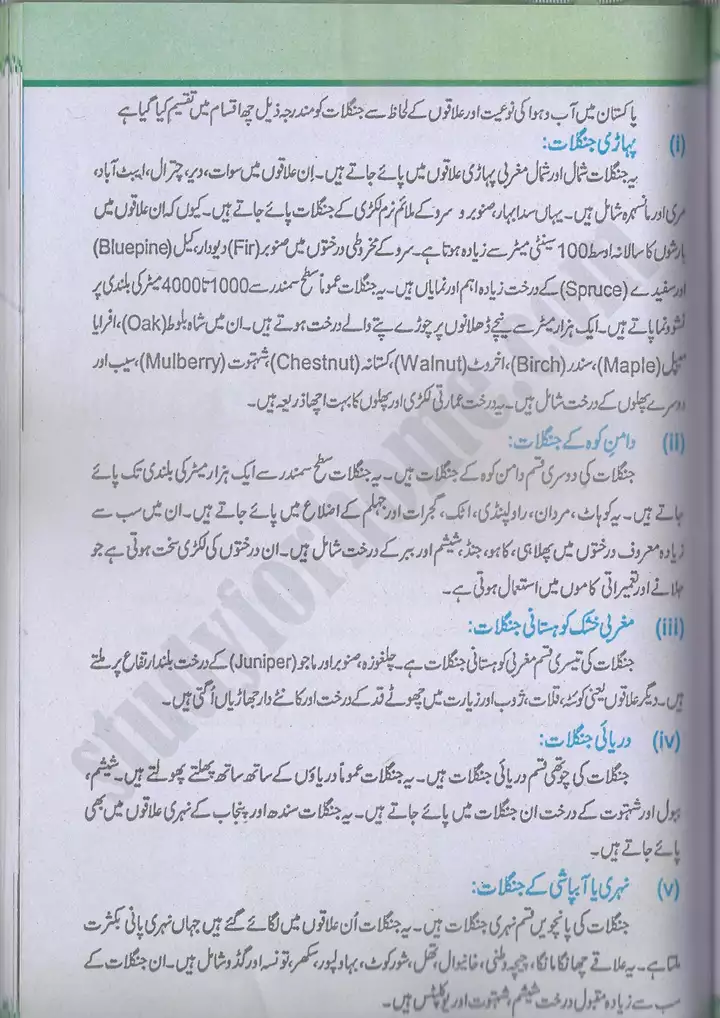 پاکستان میں آب و ہوا کی نوعیت اور علاقوں کے لحاظ سے جنگلات کو مندرجہ ذیل چھ اقسام میں تقسیم کیا گیا ہے
(i) پہاڑی جنگلات:
یہ جنگلات شمال اور شمال مغربی پہاڑی علاقوں میں پائے جاتے ہیں۔ اِن علاقوں میں سوات، دیر، چترال، ایبٹ آباد،
مری اور مانسہرہ شامل ہیں۔ یہاں سدا بہار، صنوبر و سرو کے ملائم نرم لکڑی کے جنگلات پائے جاتے ہیں۔ کیوں کہ ان علاقوں میں
بارشوں کا سالانہ اوسط 100 سینٹی میٹر سے زیادہ ہوتا ہے۔ سرو کے مخروطی درختوں میں صنوبر (Fir) دیودار، کیل (Bluepine)
اور سفیدے (Spruce) کے درخت زیادہ اہم اور نمایاں ہیں۔ یہ جنگلات عموماً سطح سمندر سے 1000 تا 4000 میٹر کی بلندی پر
نشوونما پاتے ہیں۔ ایک ہزار میٹر سے نیچے ڈھلانوں پر چوڑے پتے والے درخت ہوتے ہیں۔ ان میں شاہ بلوط (Oak)، افرایا
میپل (Maple)، سندر (Birch)، اخروٹ (Walnut)، کستانہ (Chestnut)، شہتوت (Mulberry)، سیب اور
دوسرے پھلوں کے درخت شامل ہیں۔ یہ درخت عمارتی لکڑی اور پھلوں کا بہت اچھا ذریعہ ہیں۔
(ii) دامنِ کوہ کے جنگلات:
جنگلات کی دوسری قسم دامن کوہ کے جنگلات ہیں۔ یہ جنگلات سطح سمندر سے ایک ہزار میٹر کی بلندی تک پائے
جاتے ہیں۔ یہ کوہاٹ، مردان، راولپنڈی، اٹک، گجرات اور جہلم کے اضلاع میں پائے جاتے ہیں۔ ان میں سب سے
زیادہ معروف درختوں میں پھلاہی، کاہو، جنڈ، شیشم اور بیر کے درخت شامل ہیں۔ ان درختوں کی لکڑی سخت ہوتی ہے جو
جلانے اور تعمیراتی کاموں میں استعمال ہوتی ہے۔
(iii) مغربی خشک کوہستانی جنگلات:
جنگلات کی تیسری قسم مغربی کوہستانی جنگلات ہے۔ چلغوزہ، صنوبر اور ماجو (Juniper) کے درخت بلند ارتفاع پر ملتے
ہیں۔ دیگر علاقوں یعنی کوئٹہ، قلات، ژوب اور زیارت میں چھوٹے قد کے درخت اور کانٹے دار جھاڑیاں اُگتی ہیں۔
(iv) دریائی جنگلات:
جنگلات کی چوتھی قسم دریائی جنگلات ہیں۔ یہ جنگلات عموماً دریاؤں کے ساتھ ساتھ پھلتے پھولتے ہیں۔ شیشم،
ببول اور شہتوت کے درخت ان جنگلات میں پائے جاتے ہیں۔ یہ جنگلات سندھ اور پنجاب کے نہری علاقوں میں بھی
پائے جاتے ہیں۔
(v) نہری یا آبپاشی کے جنگلات:
جنگلات کی پانچویں قسم نہری جنگلات ہیں۔ یہ جنگلات اُن علاقوں میں لگائے گئے ہیں جہاں نہری پانی بکثرت
ملتا ہے۔ یہ علاقے چھانگا مانگا، چیچہ وطنی، خانیوال، تھل، شورکوٹ، بہاولپور، سکھر، تونسہ اور گدو شامل ہیں۔ ان جنگلات کے
سب سے زیادہ مقبول درخت شیشم، شہتوت اور یوکلپٹس ہیں۔
studyforhome.com